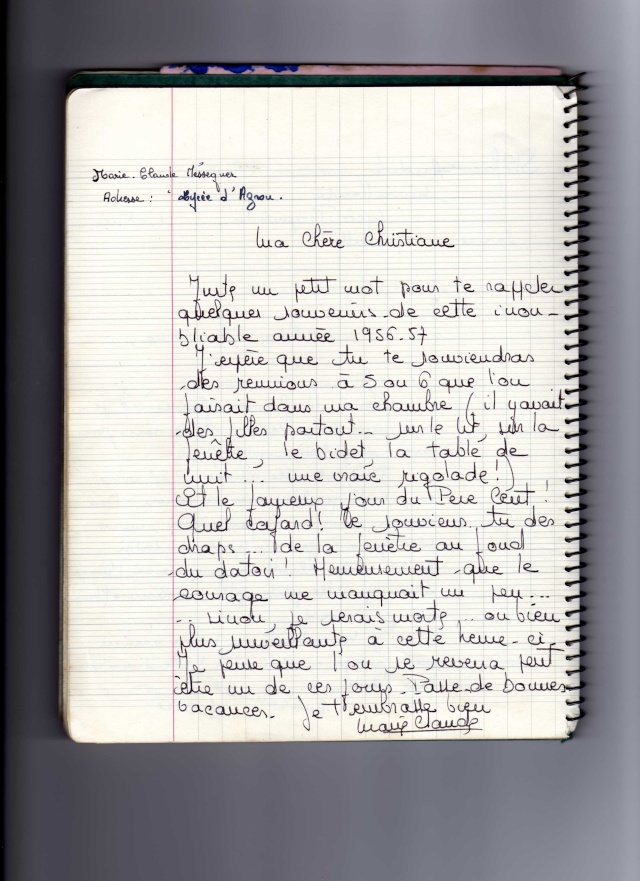 Marie-Claude Mésseguer
Adresse : Lycée d'Agnou.
Ma Chère Christiane
Juste un petit mot pour te rappeler
quelques souvenirs de cette inou-
bliable année 1956.57
J'espère que tu te souviendras
des reunions à 5 ou 6 que l'on
faisait dans ma chambre (il y avait
des filles partout... sur le lit, sur la
fenêtre, le bidet, la table de
nuit... une vraie rigolade!)
Et le fameux jour du Père Cent!
Quel cafard! Te souviens. tu des
draps... de la fenêtre au fond
du datoir! Heureusement que le
courage me manquait un peu...
... sinon, je serais morte... ou bien
plus surveillante à cette heure-ci
Je pense que l'on se reverra peut
être un de ces jours. Passe de bonnes
vacances. Je t'embrasse bien
Marie Claude